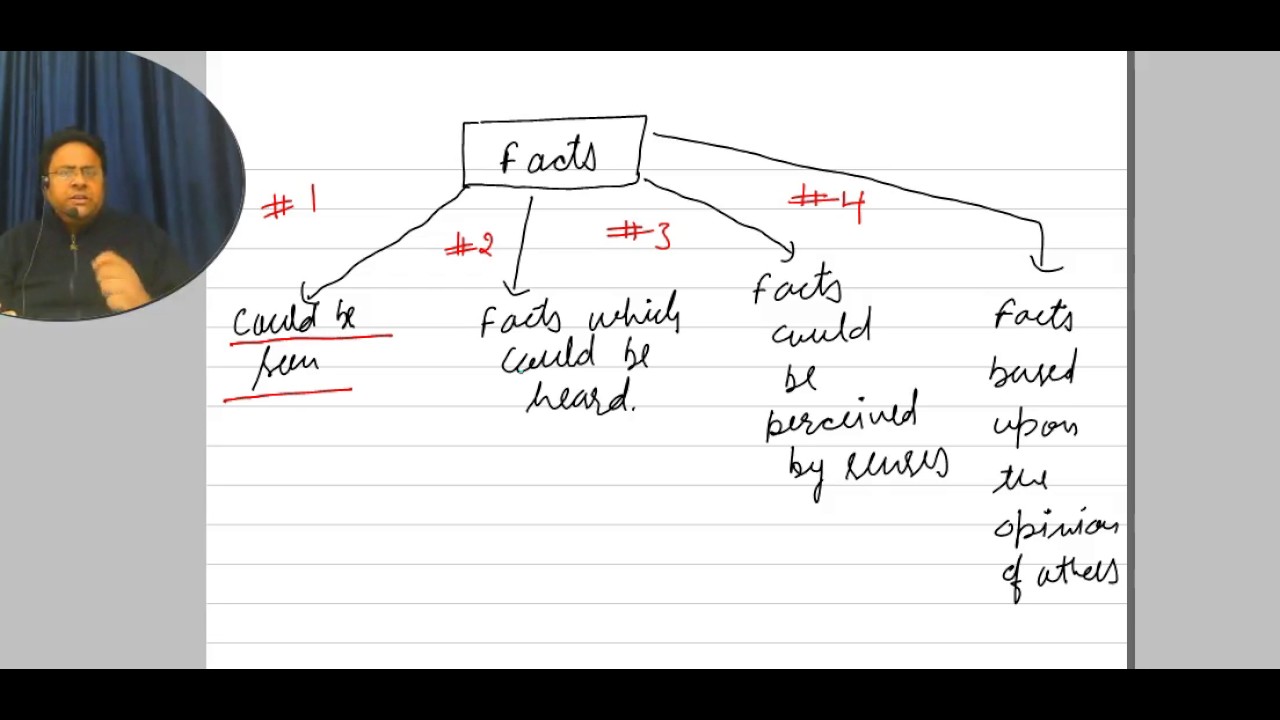 Facts
#1
#2
#3
#4
Could be
seen
Facts which
could be
heard.
Facts
could
be
perceived
by senses
Facts
based
upon
the
opinion
of others